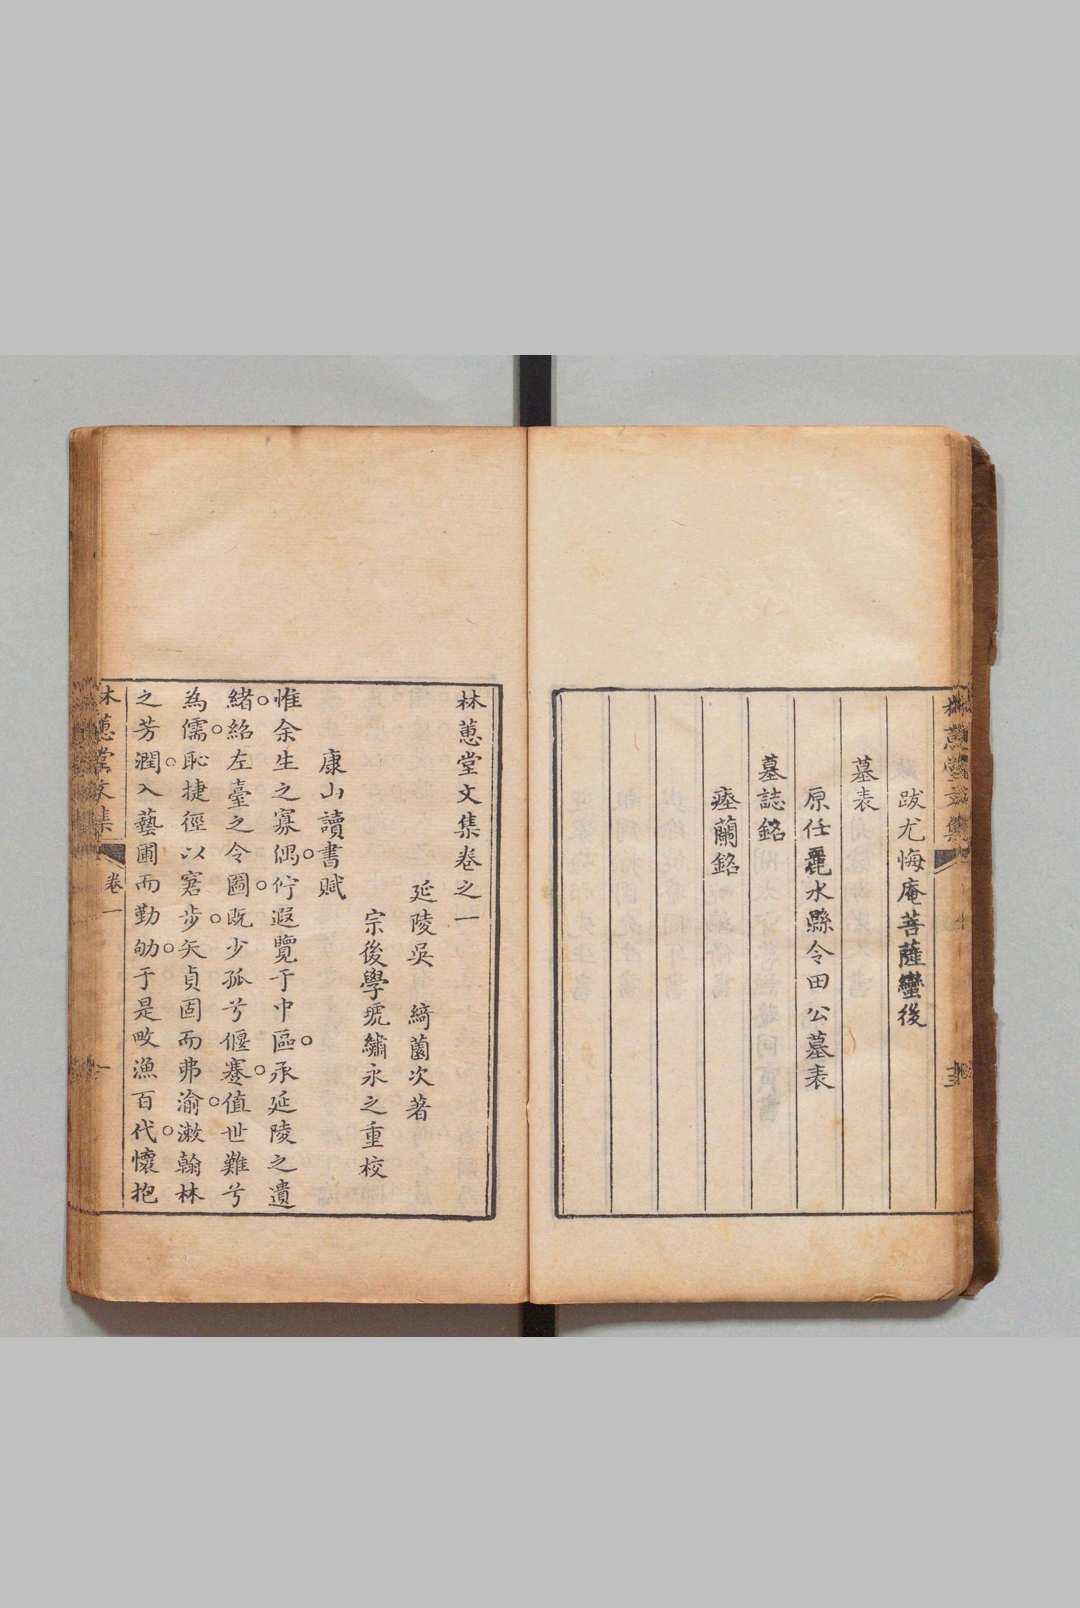 林蕙堂文集
跋尤悔庵菩薩蠻後
墓表
原任麗水縣令田公墓表
墓誌銘
瘞蘭銘
林蕙堂文集卷之一
延陵吳　綺薗次著
宗後學琥繡永之重校
康山讀書賦
惟余生之寡偶佇遐覽于中區承延陵之遺
緒紹左臺之令圖既少孤兮偃蹇值世難兮
為儒恥捷徑以窘步矢貞固而弗渝漱翰林
之芳潤入藝圃而勤劬于是畋漁百代懷抱
林蕙堂文集　卷一